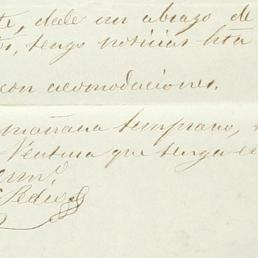 te, dale un abrazo de
tengo noticias hta
con acomodaciones.
mañana temprano,
Ventura que tenga
erm.º
Pedro